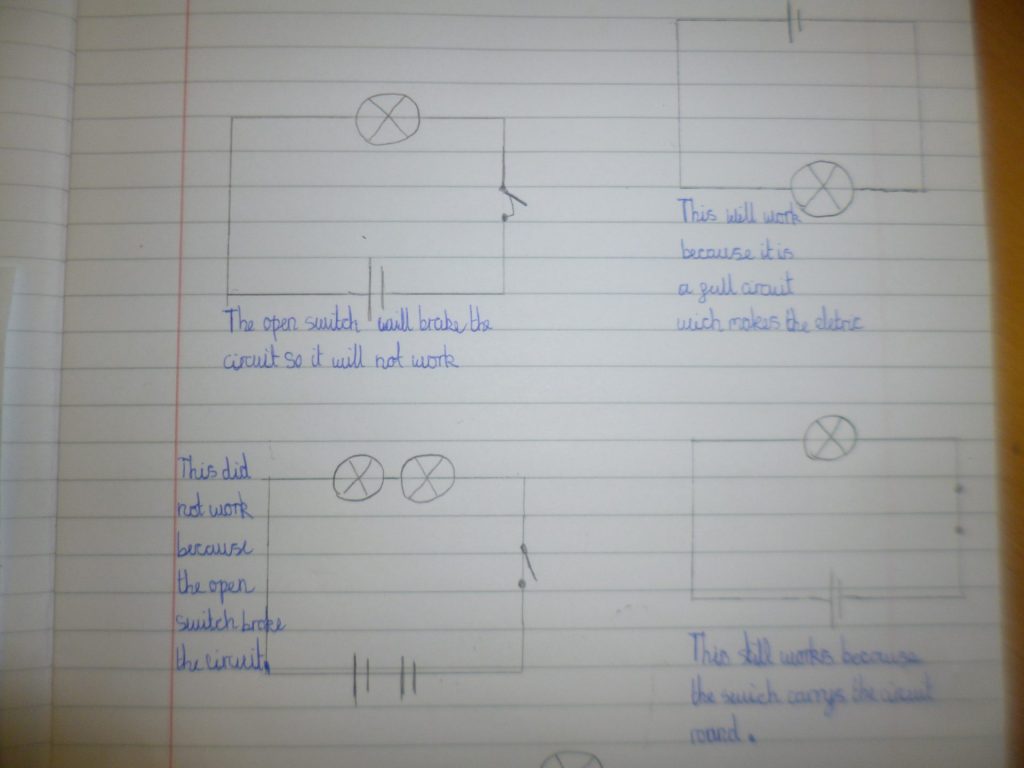 The open switch will brake the
circuit so it will not work
This will work
because it is
a full circuit
wich makes the eletric
This did
not work
because
the open
switch broke
the circuit.
This still works because
the swich carrys the circuit
round.